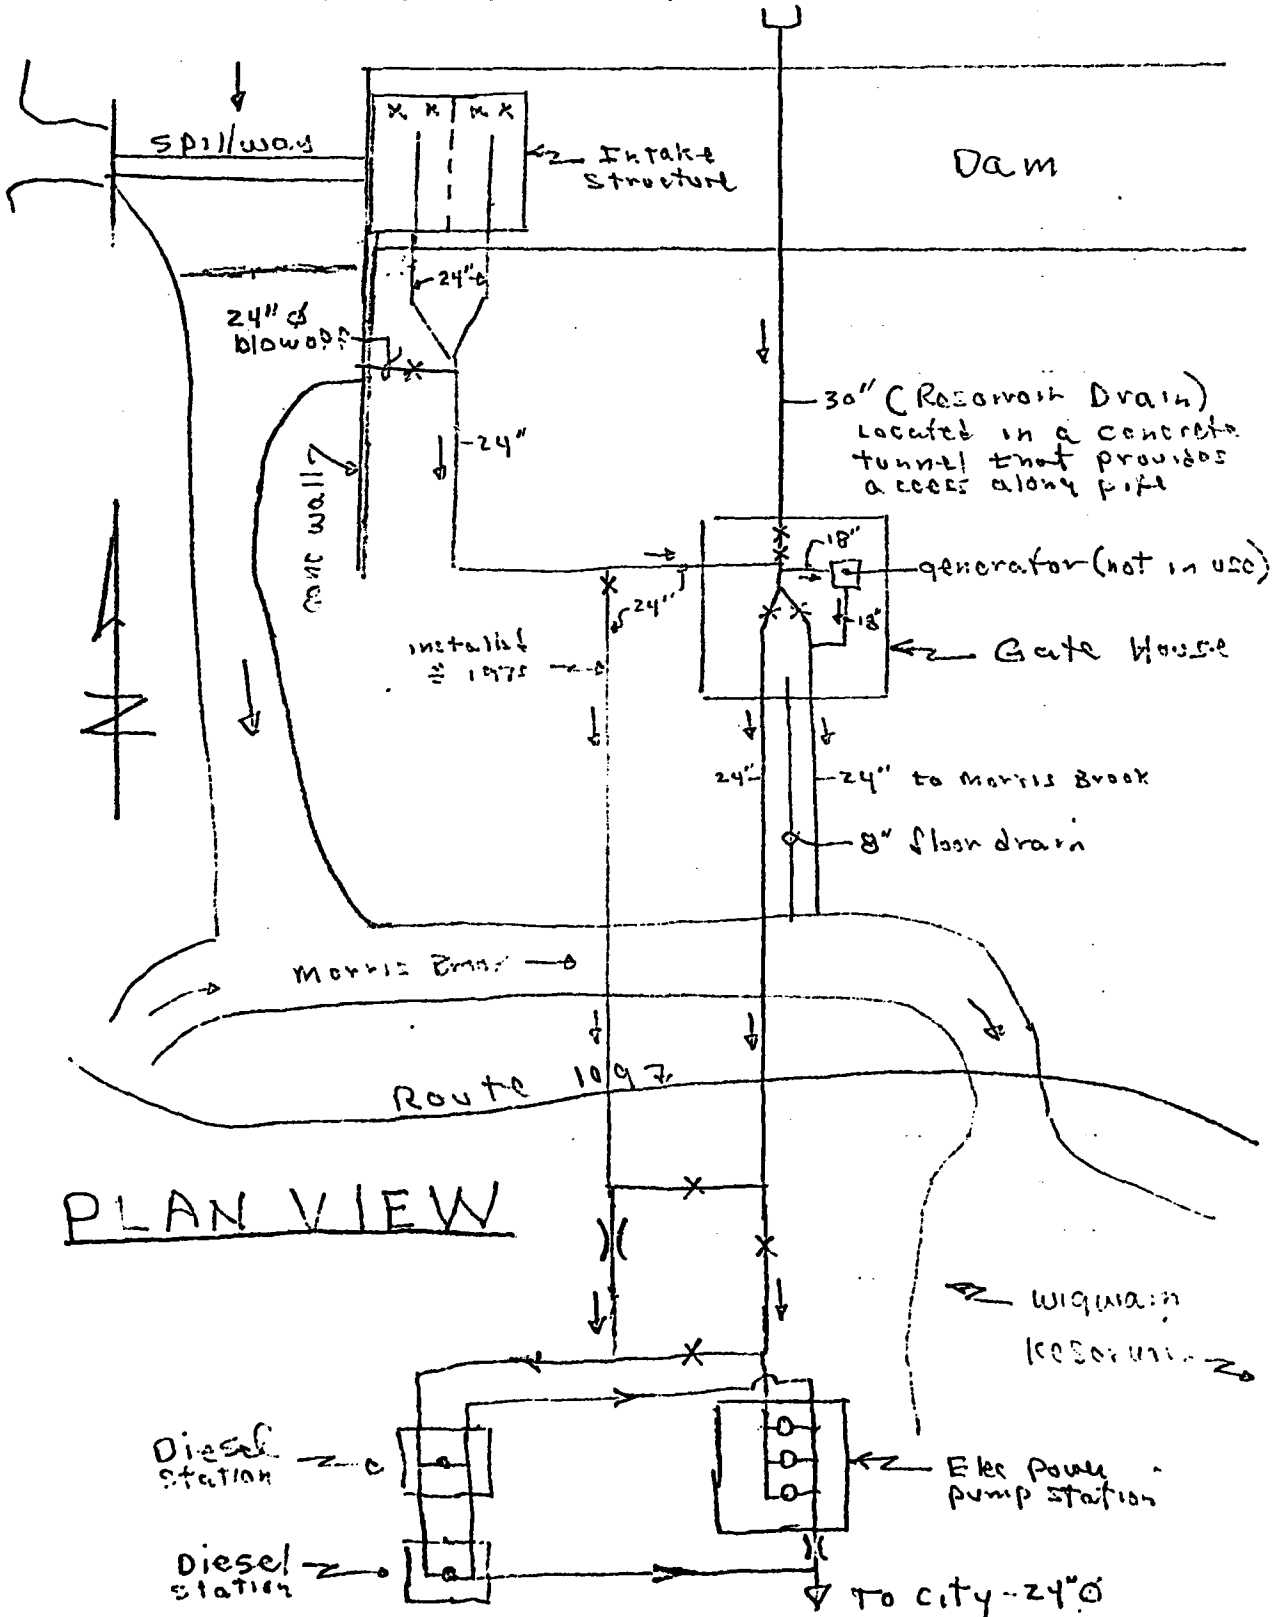 Spillway
Intake
Structure
Dam
24"
24" Ø
blowoff
30" (Reservoir Drain)
Located in a concrete
tunnel that provides
access along pipe
24"
conc wall
18"
generator (not in use)
24"
18"
installed
≈ 1975
Gate House
N
24"
24" to Morris Brook
8" floor drain
Morris Brook
Route 109
PLAN VIEW
Wigwam
Reservoir
Diesel
station
Elec power
pump station
Diesel
station
To City - 24" Ø